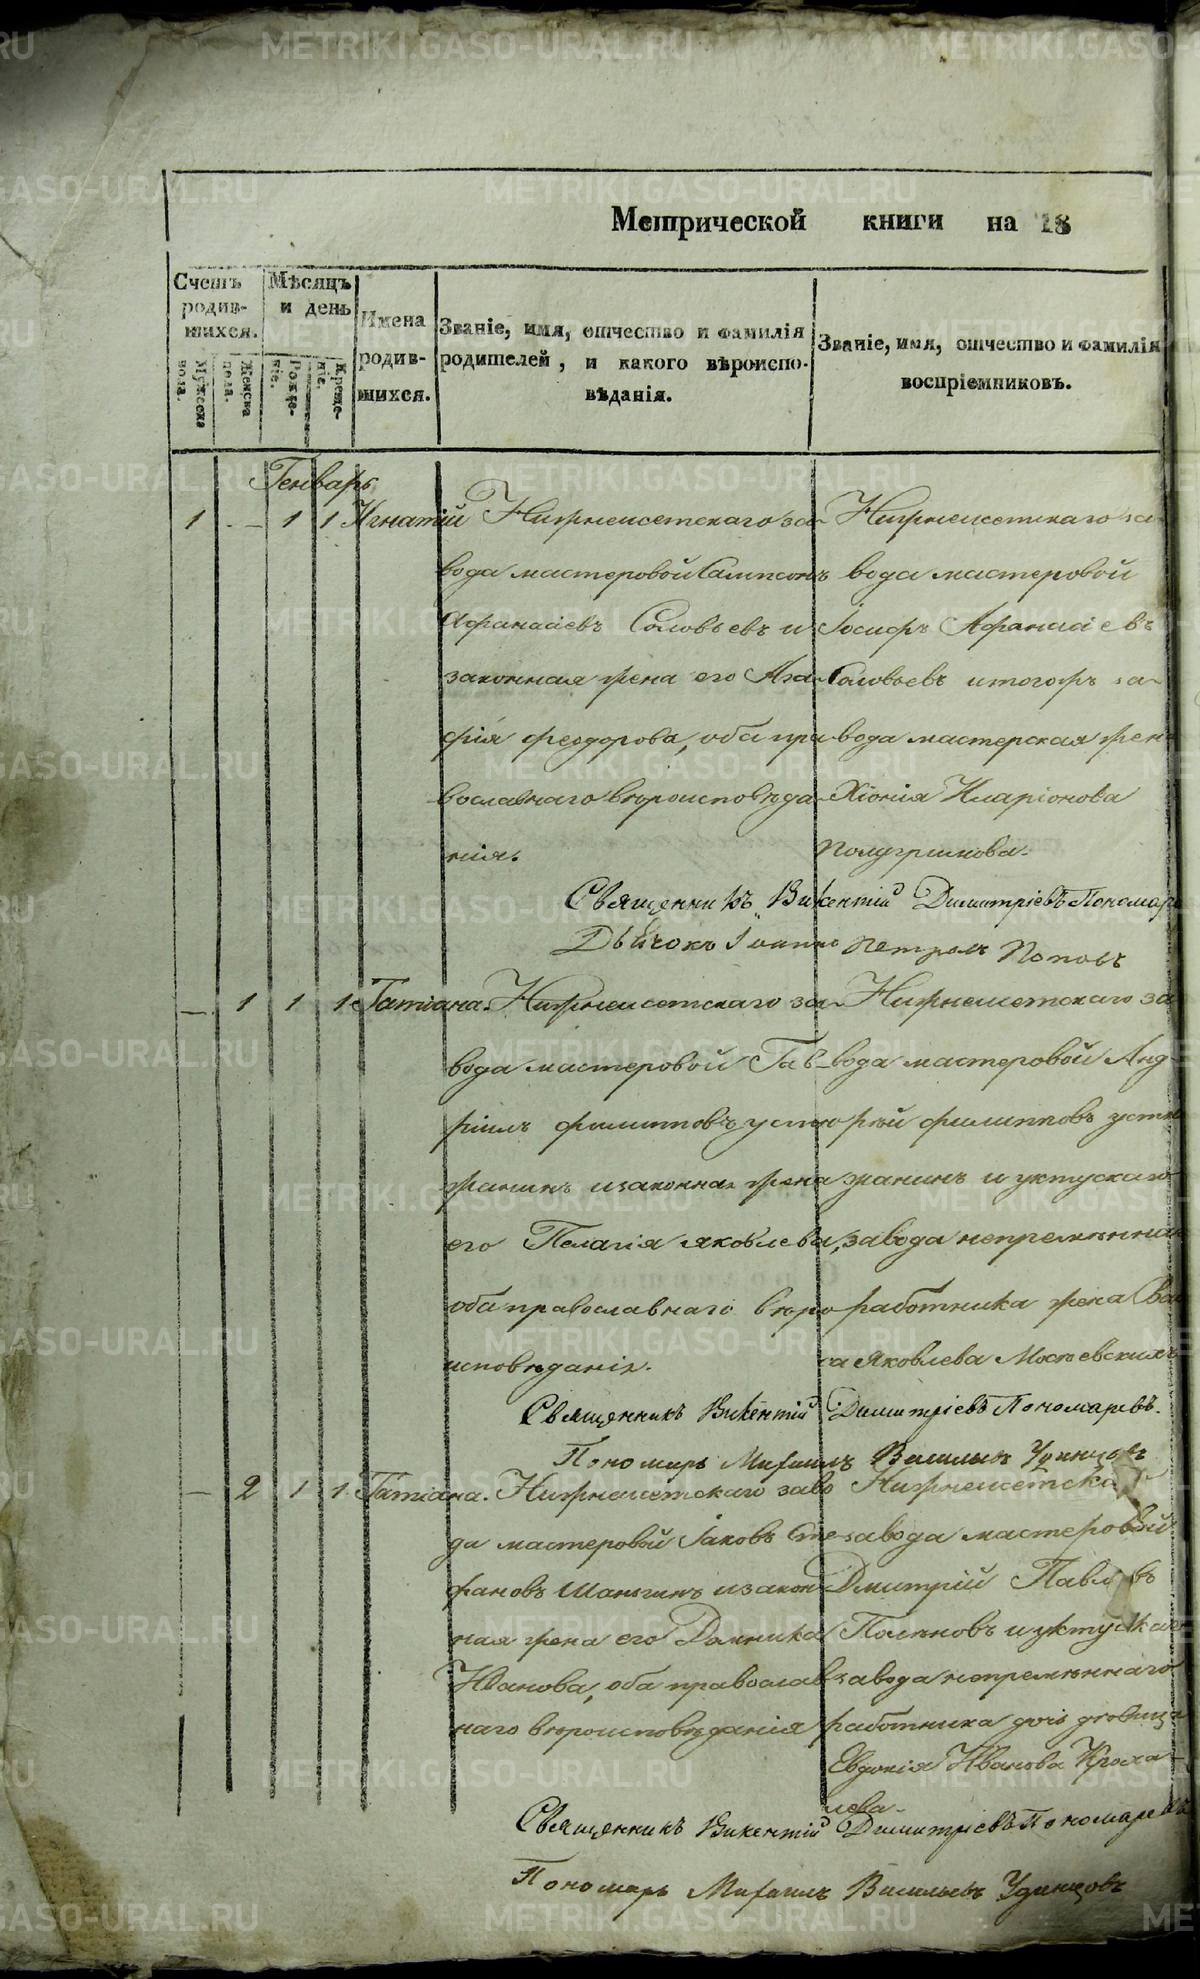 METRIKI.GASO-URAL.RU
Метрической книги на 18
Счетъ родившихся.
Мужеска пола.
Женска пола.
Мѣсяцъ и день
Рожденіе.
Крещеніе.
Имена родившихся.
Званіе, имя, отчество и фамилія
родителей, и какого вѣроиспо-
вѣданія.
Званіе, имя, отчество и фамилія
воспріемниковъ.
Генварь
1 - 1 1 Игнатій
Нижнеисетскаго за-
вода мастеровой Сампсонъ
Афанасіевъ Соловьевъ и
законная жена его Ага-
фія феодорова, оба пра
вославнаго вѣроисповѣда-
нія.
Нижнеисетскаго за-
вода мастеровой
Іосифъ Афанасіевъ
Соловьевъ и тогожъ за-
вода мастерская жена
Хіонія Иларіонова
Полугрипнова.
Священникъ Викентій Димитріевъ Пономаре
Дьячокъ Іоаннъ Петровъ Поповъ
- 1 1 1 Татіана.
Нижнеисетскаго за-
вода мастеровой Гав-
ріилъ филипповъ устю
жанинъ и законная жена
его Пелагія яковлева,
оба православнаго вѣро
исповѣданія.
Нижнеисетскаго за
вода мастеровой Анд
рѣй филипповъ устю
жанинъ и уктускаго
завода непремѣннаго
работника жена Вас
са Яковлева Мостевскихъ
Священникъ Викентій Димитріевъ Пономаревъ.
Пономарь Михаилъ Васильевъ Удинцовъ
- 2 1 1 Татіана.
Нижнеисетскаго заво
да мастеровой Іаковъ Сте-
фановъ Шаньгинъ и закон
ная жена его Домника
Иванова, оба православ
наго вѣроисповѣданія
Нижнеисетска
завода мастеровый
Дмитрій Павловъ
Поляковъ и уктускаго
завода непремѣннаго
работника дочь дѣвица
Евдокія Иванова Кроха-
лева.
Священникъ Викентій Димитріевъ Пономаревъ
Пономарь Михаилъ Васильевъ Удинцовъ